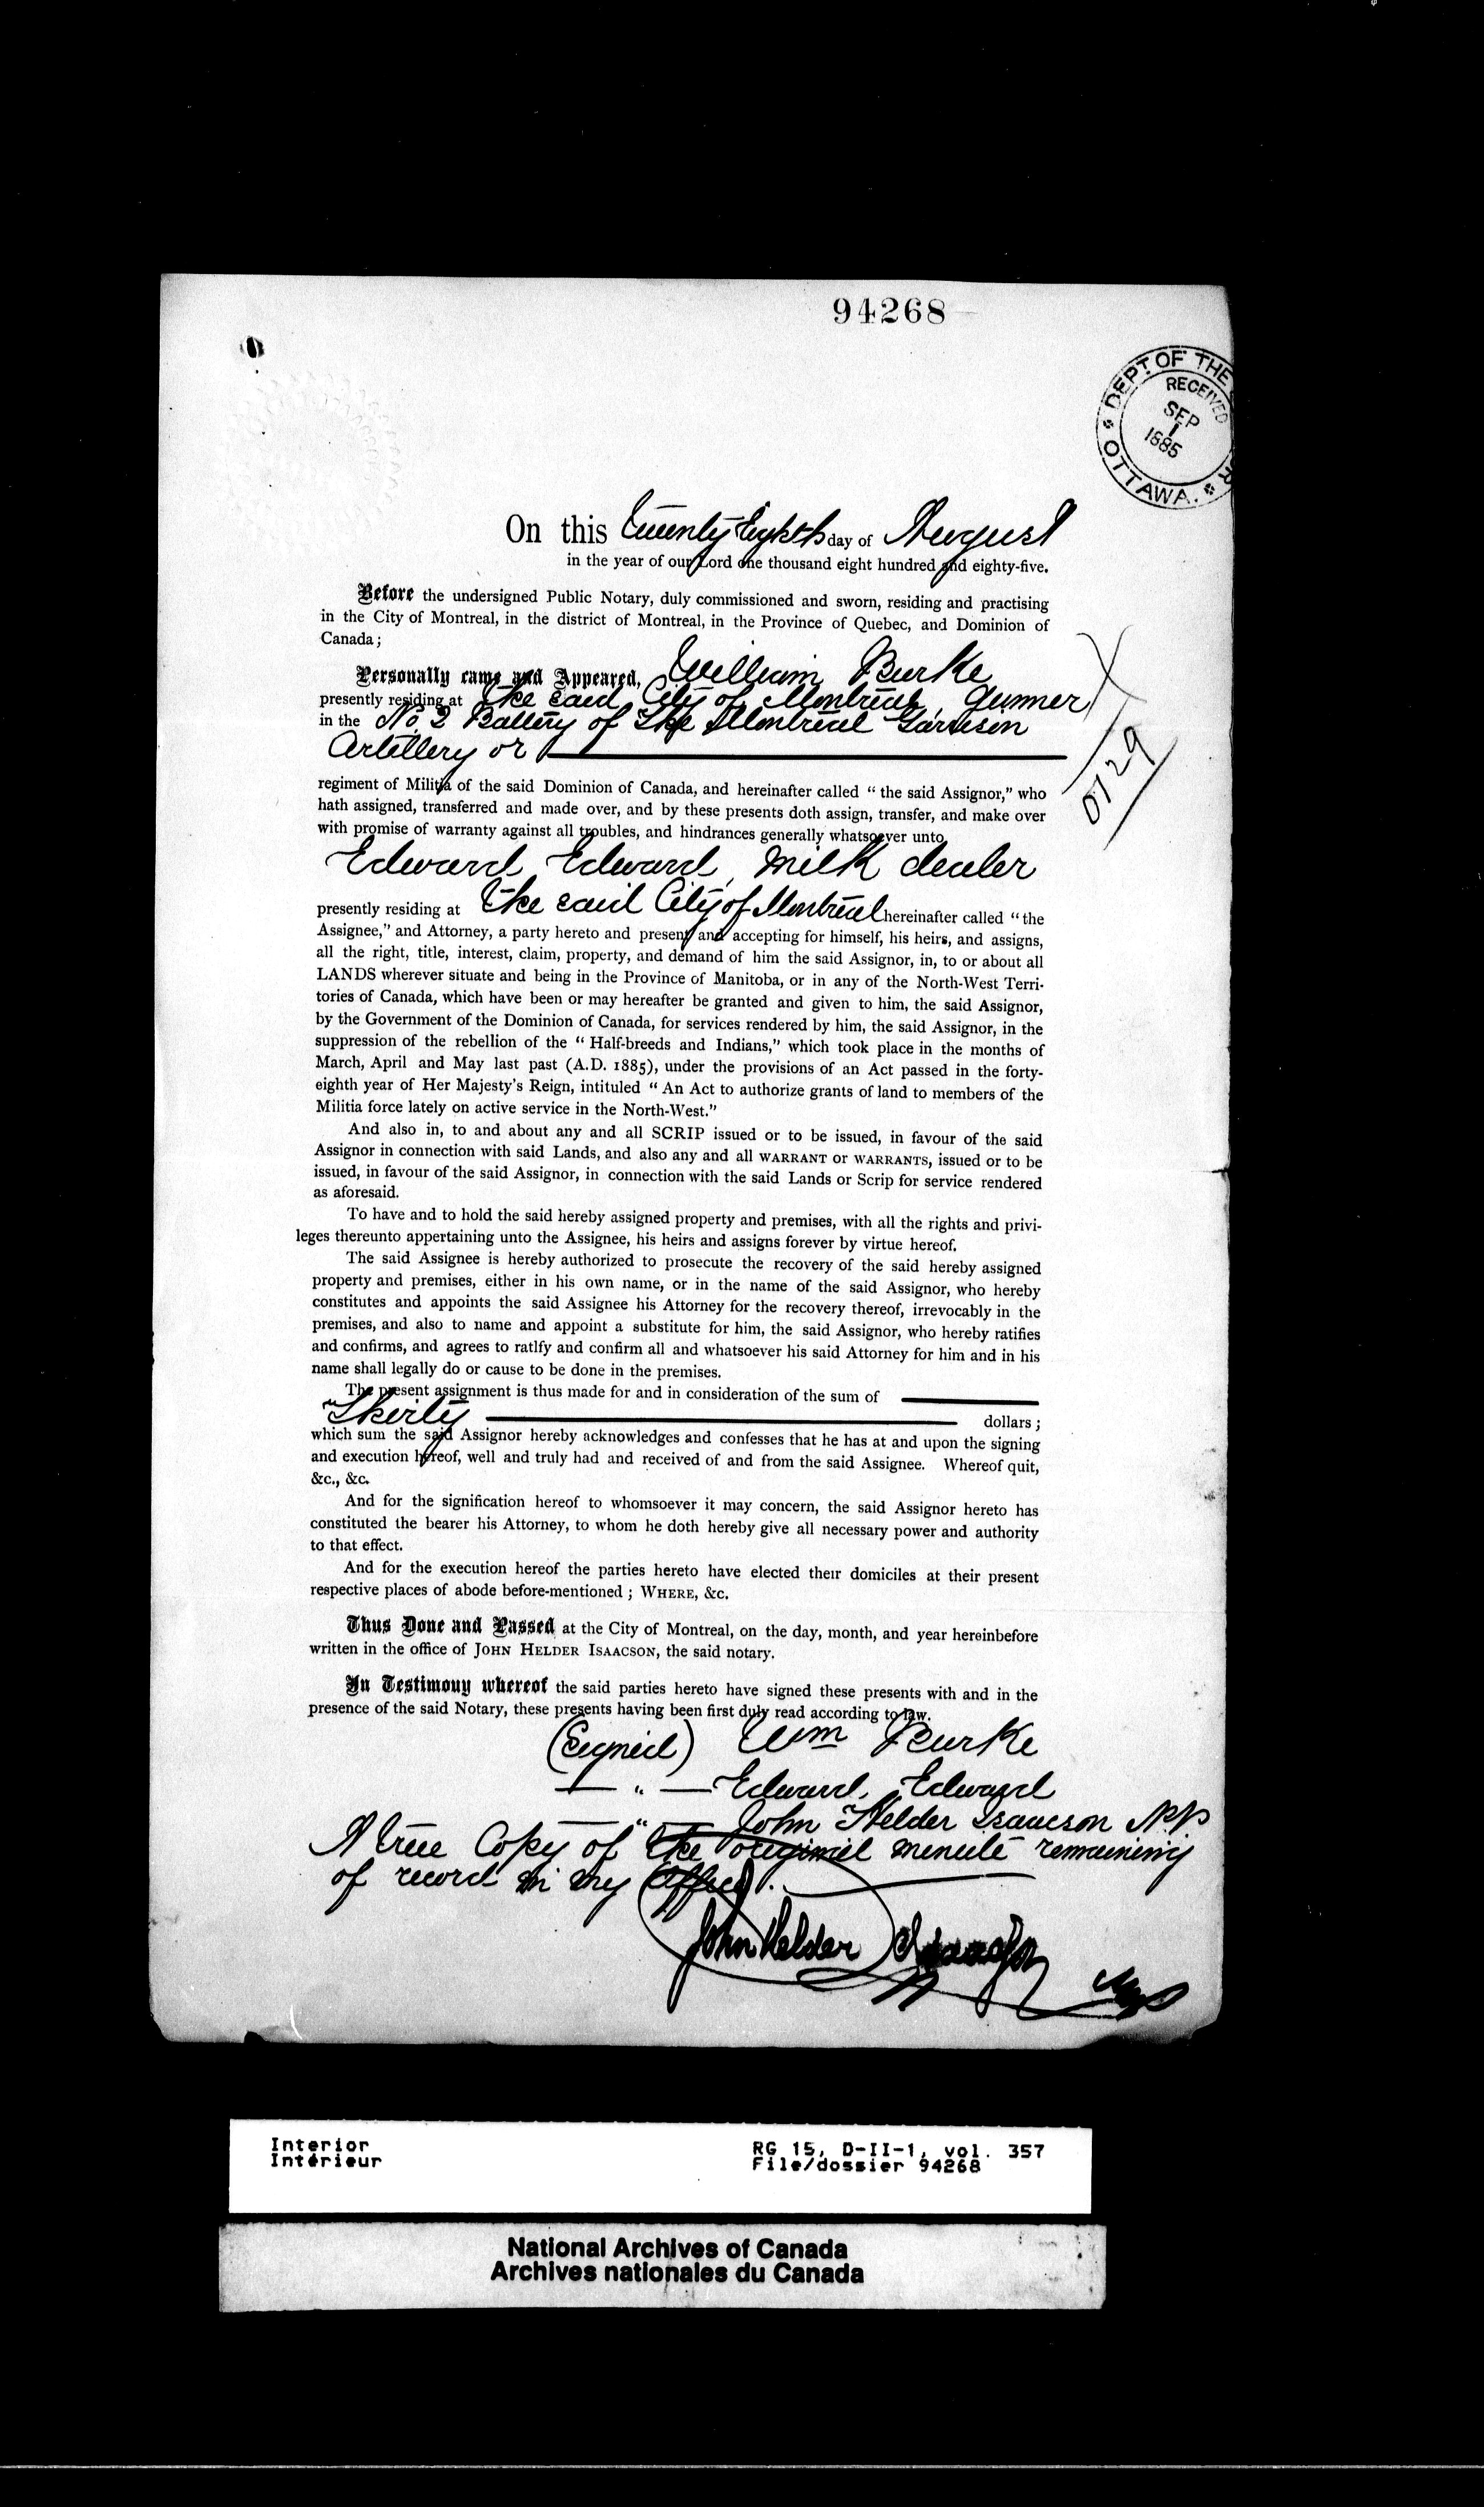 94268
DEPT. OF THE
RECEIVED
SEP
1
1885
OTTAWA.
On this Twenty Eighth day of August
in the year of our Lord one thousand eight hundred and eighty-five.
Before the undersigned Public Notary, duly commissioned and sworn, residing and practising
in the City of Montreal, in the district of Montreal, in the Province of Quebec, and Dominion of
Canada;
Personally came and Appeared, William Burke
presently residing at the said City of Montreal, Gunner
in the No 2 Battery of The Montreal Garrison
Artillery or
0129
regiment of Militia of the said Dominion of Canada, and hereinafter called "the said Assignor," who
hath assigned, transferred and made over, and by these presents doth assign, transfer, and make over
with promise of warranty against all troubles, and hindrances generally whatsoever unto
Edward Edward, milk dealer
presently residing at the said City of Montreal hereinafter called "the
Assignee," and Attorney, a party hereto and present and accepting for himself, his heirs, and assigns,
all the right, title, interest, claim, property, and demand of him the said Assignor, in, to or about all
LANDS wherever situate and being in the Province of Manitoba, or in any of the North-West Terri-
tories of Canada, which have been or may hereafter be granted and given to him, the said Assignor,
by the Government of the Dominion of Canada, for services rendered by him, the said Assignor, in the
suppression of the rebellion of the "Half-breeds and Indians," which took place in the months of
March, April and May last past (A.D. 1885), under the provisions of an Act passed in the forty-
eighth year of Her Majesty's Reign, intituled "An Act to authorize grants of land to members of the
Militia force lately on active service in the North-West."
And also in, to and about any and all SCRIP issued or to be issued, in favour of the said
Assignor in connection with said Lands, and also any and all WARRANT or WARRANTS, issued or to be
issued, in favour of the said Assignor, in connection with the said Lands or Scrip for service rendered
as aforesaid.
To have and to hold the said hereby assigned property and premises, with all the rights and privi-
leges thereunto appertaining unto the Assignee, his heirs and assigns forever by virtue hereof.
The said Assignee is hereby authorized to prosecute the recovery of the said hereby assigned
property and premises, either in his own name, or in the name of the said Assignor, who hereby
constitutes and appoints the said Assignee his Attorney for the recovery thereof, irrevocably in the
premises, and also to name and appoint a substitute for him, the said Assignor, who hereby ratifies
and confirms, and agrees to ratify and confirm all and whatsoever his said Attorney for him and in his
name shall legally do or cause to be done in the premises.
The present assignment is thus made for and in consideration of the sum of
Thirty dollars;
which sum the said Assignor hereby acknowledges and confesses that he has at and upon the signing
and execution hereof, well and truly had and received of and from the said Assignee. Whereof quit,
&c., &c.
And for the signification hereof to whomsoever it may concern, the said Assignor hereto has
constituted the bearer his Attorney, to whom he doth hereby give all necessary power and authority
to that effect.
And for the execution hereof the parties hereto have elected their domiciles at their present
respective places of abode before-mentioned; WHERE, &c.
Thus Done and Passed at the City of Montreal, on the day, month, and year hereinbefore
written in the office of JOHN HELDER ISAACSON, the said notary.
In Testimony whereof the said parties hereto have signed these presents with and in the
presence of the said Notary, these presents having been first duly read according to law.
(Signed) Wm Burke
— " — Edward Edward
— " — John Helder Isaacson NP
A true Copy of the original minute remaining
of record in my Office.
John Helder Isaacson
NP
Interior
Intérieur
RG 15, D-II-1, vol. 357
File/dossier 94268
National Archives of Canada
Archives nationales du Canada